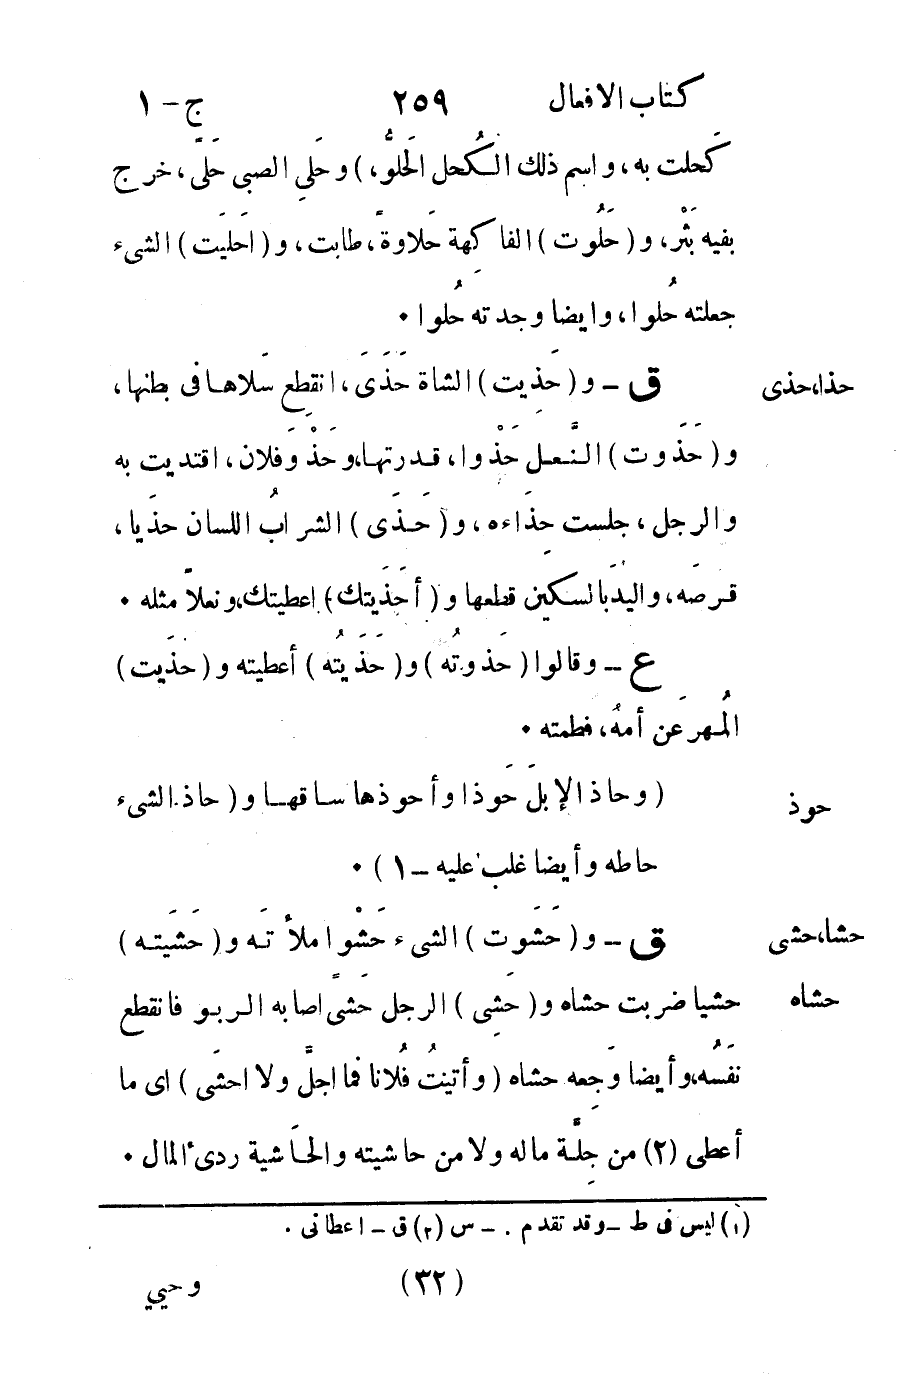 كتاب الافعال ٢٥٩ ج – ١
كَحلت به، واسم ذلك الكُحل الحَلوُّ، ) و حَلَي الصبى حَلًى، خرج
بفيه بَثْر، و ( حَلُوت ) الفاكهة حَلاوةً، طابت، و ( احلَيَت ) الشىء
جعلته حُلوا، وايضا وجدته حُلوا ٠
حذا، حذى ق – و ( حَذِيت ) الشاة حَذًى، انقطع سَلاها فى بطنها،
و ( حَذَوت ) النَّعل حَذْوا، قدرتها، وحَذْوَ فلان، اقتديت به
والرجل، جلست حِذاءه، و ( حَذَى ) الشرابُ اللسان حَذيا،
قرصَه، واليدَ بالسكين قطعها و ( أحْذَيتك ) اعطيتك، ونعلاً مثله ٠
ع – وقالوا ( حَذوتُه ) و ( حَذَيتُه ) أعطيته و ( حذَيت )
المُهرَ عن أمهُ، فطمته ٠
حوذ ( وحاذ الإبلَ حَوذا وأحوذها ساقها و ( حاذ الشىء
حاطه وأيضا غلب عليه – ١ ) ٠
حشا، حشى ق – و ( حَشَوت ) الشىء حَشْوا ملأتَه و ( حَشَيته )
حشاه حشيا ضربت حشاه و ( حَشِى ) الرجل حَشًى اصابه الربو فانقطع
نفَسُه، وأيضا وَجِعه حشاه ( وأتيتُ فُلانا فما اجلَّ ولا احشَى ) اى ما
أعطى (٢) من جِلَّة ماله ولا من حاشيته والحَاشية ردىء المال ٠
(١) ليس فى ط – وقد تقدم . – س (٢) ق – اعطانى .
(٣٢) وحيي